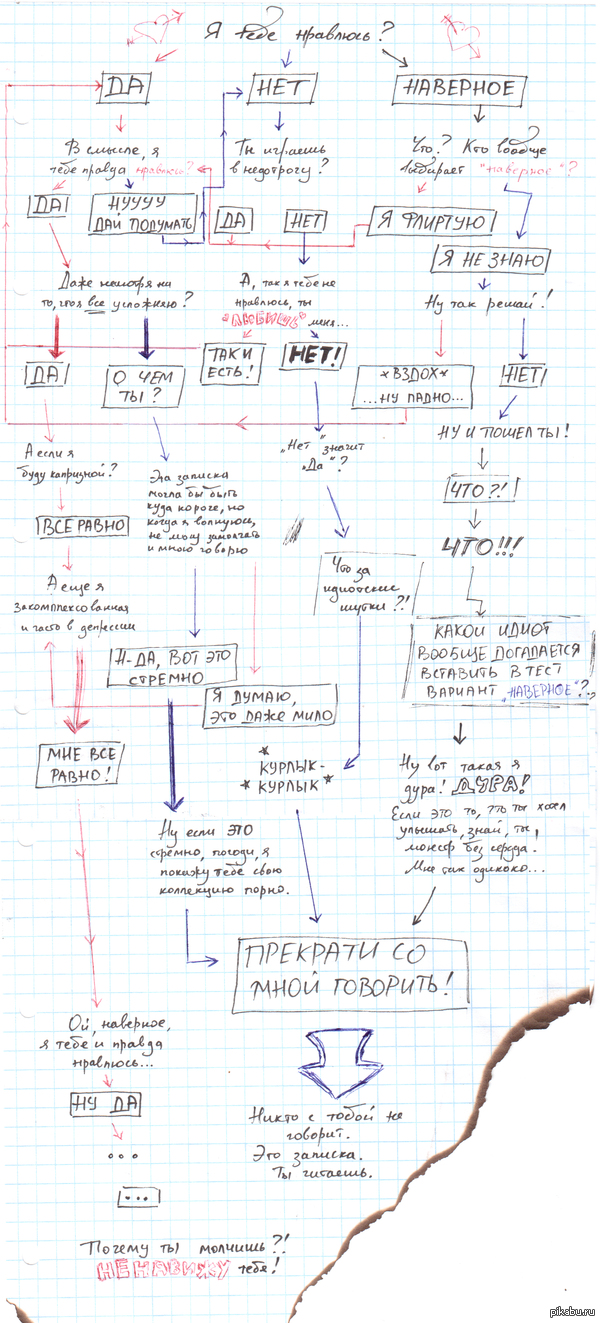 Я тебе нравлюсь?
ДА
НЕТ
НАВЕРНОЕ
В смысле, я
тебе правда нравлюсь?
Ты играешь
в недотрогу?
Что? Кто вообще
выбирает "наверное"?
ДА!
НУУУУ
ДАЙ ПОДУМАТЬ
ДА
НЕТ
Я ФЛИРТУЮ
Я НЕ ЗНАЮ
Даже несмотря на
то, что я все усложняю?
А, так я тебе не
нравлюсь, ты
"ЛЮБИШЬ" меня...
Ну так решай!
ДА
О ЧЕМ
ТЫ?
ТАК И
ЕСТЬ!
НЕТ!
*ВЗДОХ*
...НУ ЛАДНО...
НЕТ!
А если я
буду капризной?
Эта записка
могла бы быть
куда короче, но
когда я волнуюсь,
не могу замолчать
и много говорю
"Нет" значит
"Да"?
НУ И ПОШЕЛ ТЫ!
ВСЕ РАВНО
ЧТО?!
ЧТО!!!
А еще я
закомплексованная
и часто в депрессии
Что за
идиотские
шутки?!
Н-ДА, ВОТ ЭТО
СТРЕМНО
Я ДУМАЮ,
ЭТО ДАЖЕ МИЛО
КАКОЙ ИДИОТ
ВООБЩЕ ДОГАДАЕТСЯ
ВСТАВИТЬ В ТЕСТ
ВАРИАНТ "НАВЕРНОЕ"?
МНЕ ВСЕ
РАВНО!
*КУРЛЫК-
*КУРЛЫК*
Ну вот такая я
дура! ДУРА!
Если это то, что ты хотел
услышать, знай, ты,
монстр без сердца.
Мне так одиноко...
Ну если ЭТО
стремно, погоди, я
покажу тебе свою
коллекцию порно.
ПРЕКРАТИ СО
МНОЙ ГОВОРИТЬ!
Ой, наверное,
я тебе и правда
нравлюсь...
НУ ДА
...
...
Никто с тобой не
говорит.
Это записка.
Ты читаешь.
Почему ты молчишь?!
НЕНАВИЖУ тебя!
pikabu.ru